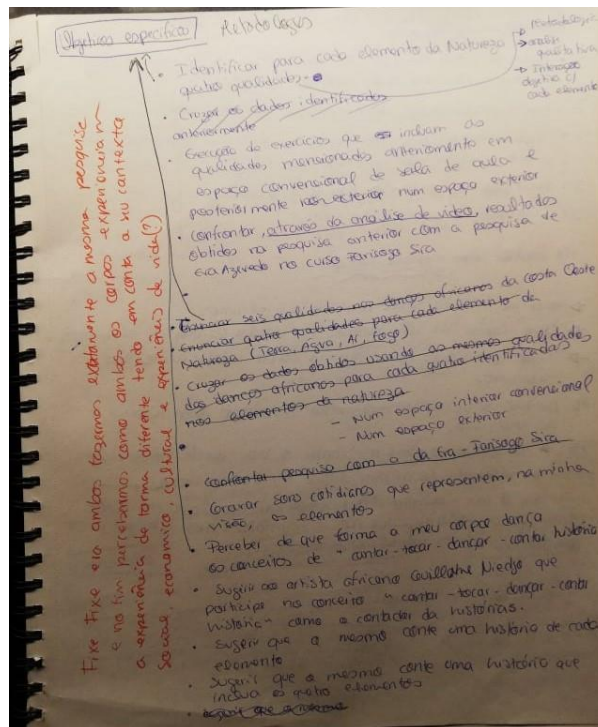 Objetivos específicos
Metodologias
• Identificar para cada elemento da Natureza
quatro qualidades.
→ análise
qualitativa
→ Interação
objetivo c/
cada elemento
• Cruzar os dados identificados
anteriormente
• Execução de exercícios que incluam as
qualidades mensionadas anteriormente em
espaço convencional de sala de aula e
posteriormente num espaço exterior
• Confrontar, através da análise de vídeo, resultados
obtidos na pesquisa anterior com a pesquisa de
Azevedo no curso Fansaga Sira
• Enunciar seis qualidades nas danças africanas da costa Oeste
• Enunciar quatro qualidades para cada elemento da
Natureza (Terra, Água, Ar, fogo)
• Cruzar os dados obtidos usando as mesmas qualidades
das danças africanas para cada quatro identificadas
nos elementos da natureza
- Num espaço interior convencional
- Num espaço exterior
• Confrontar pesquisa com a da Fansaga Sira
• Gravar sons cotidianos que representem, na minha
visão, os elementos
• Perceber de que forma o meu corpo dança
os conceitos de "cantar-tocar-dançar-contar história
• Sugerir ao artista africano Guillaume Niedjo que
participe no conceito "cantar-tocar-dançar-contar
história" como o contador da histórias.
• Sugerir que o mesmo conte uma história de cada
elemento
• Sugerir que o mesmo conte uma história que
inclua os quatro elementos
• Sugerir que o mesmo
Fixe Fixe era ambos fazermos exatamente a mesma pesquisa
e no fim percebamos como ambos os corpos experienciam
a experiência de forma diferente tendo em conta o seu contexto
social, economico, cultural e experiência de vida(?)